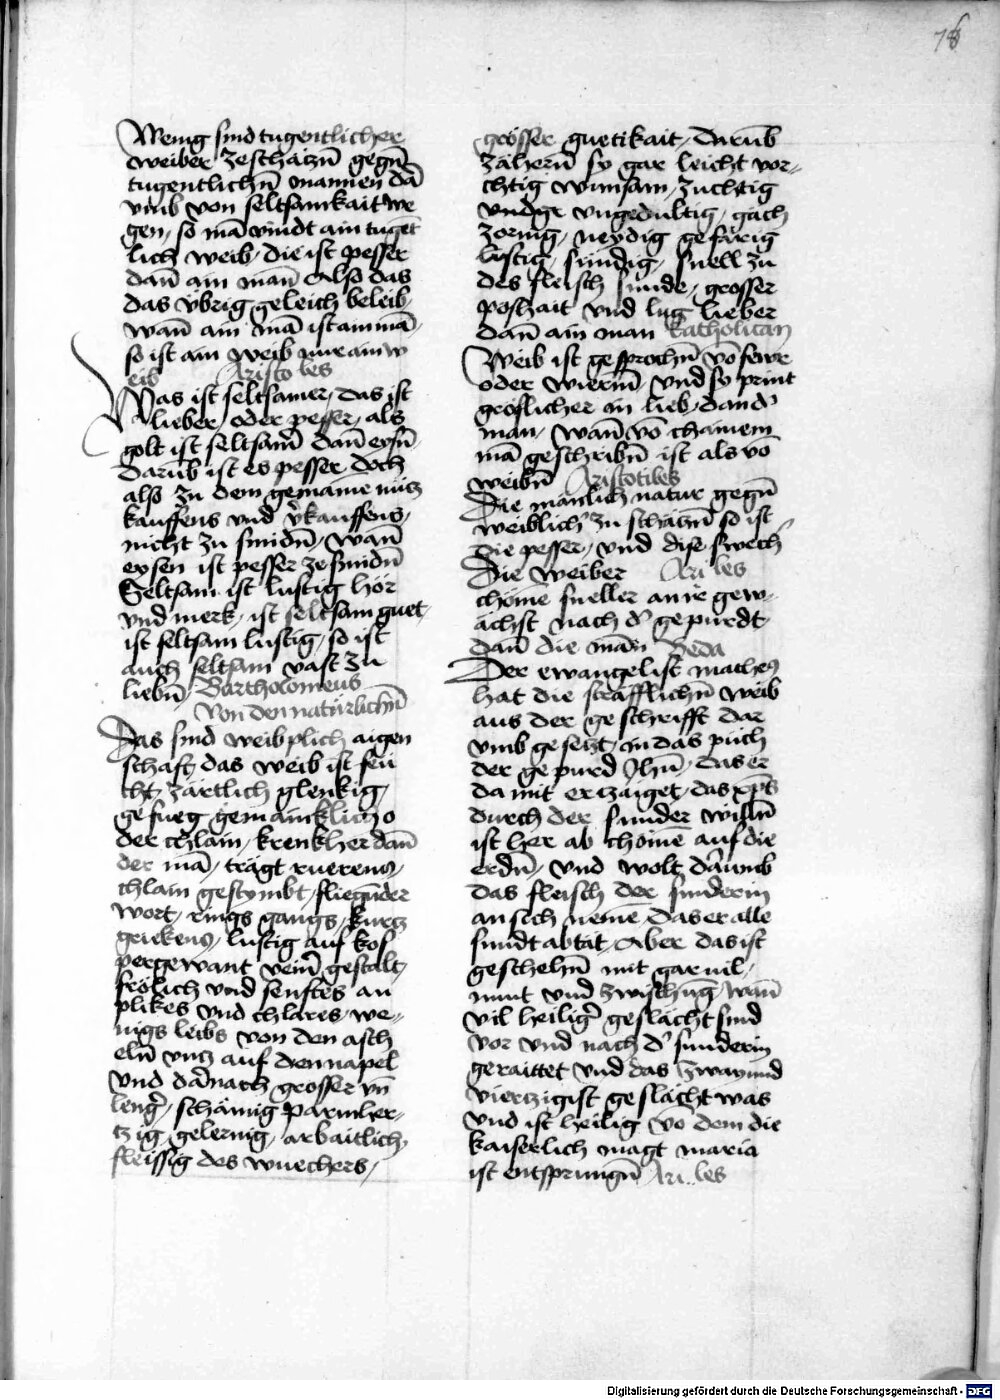 78
Wenig sind tugentlicher
weiber ze schäczn̄ gegn̄
tugentlichn̄ mannen dā
vmb von seltsamkait we
gen / so mā vindt ain tugēt
lich weib / die ist pesser
dan̄ ain man̄ Also das
das vbrig geleich beleib /
wan̄ ain mā ist ain mā /
so ist ain weib nure ain w
eib Aristo les
Was ist seltsamer / das ist
lieber / oder pesser / als
golt ist seltsam̄ dan̄ eysn̄ /
darūb ist es pesser doch
also zu dem gemaine nücz
kauffens vnd v̄kauffens /
nicht zu smidn̄ / wan̄
eysen ist pesser ze smidn̄
Seltsam ist lustig hör
vnd merk / ist seltsam guet /
ist seltsam lustig / so ist
auch seltsam vast zu
liebn̄ / Bartholomeus
von den naturlichn̄
Das sind weibplich aigen
schaft das weib ist feu
cht / zärtlich glenkig /
gefueg gemaincklich o
der chlain / krenkher dan̄
der mā / trägt ruerens /
chlain gestymbt / fliegūder
wort / rings gangs / kurcz
griekens / lustig auf kos
pergewant vein̄ gestalt /
frölich vnd senftes an
plikes vnd chlares / we=
nigs leibs von den asch
eln̄ vncz auf den napel
vnd dar̄nach grosser vn̄
lenḡ / schämig parmher=
czig / gelernig / arbaitlich /
fleissig des wuechers /
grösser guetikait / darūb
zähern̄ sy gar leicht vor=
chtig wunsam / zuchtig
vndge vngedultig / gäch
zornig / neydig gefärig
lustig / sündig / snell zu
des fleisch sunde / grosser
poshait vnd lug lieber
dan̄ ain man katholican
Weib ist gesprochn̄ vō fewr
oder wierin̄ / vnd sy print
gröslicher in lieb / dan d̄
man / wan̄ vō chainem
mā geschribn̄ ist als vō
weibn̄ Aristotiles
Die mänlich natur gegn̄
weiblich̄ zu schäczn̄ so ist
die pesser / vnd dise swech̄
Die weiber Ari les
chöme sneller an ir̄ gew=
ächst nach d̄ gepurdt
dan̄ die män̄ Beda
Der ewangelist matheus
hat die sträfflichn̄ weib
aus der geschrifft dar
vmb geseczt / in das puch
der gepurd Jhū / das er
da mit erczaiget / das xp̄s
durch der sunder willn̄
ist her ab chömē auf die
erdn̄ / vnd wolt dar̄umb
das fleisch der sunderin
an sich nemē / das er alle
sundt abtät / Aber das ist
geschehn̄ mit gar vil /
mūt vnd zwischūg / wan̄
vil heiliḡ geslächt sind
vor vnd nach d̄ sunderin
geraittet vnd das zway vnd
vierczigist geslächt was
vnd ist heilig vō dem die
kaiserlich magt maria
ist entsprungn̄ Ari les
Digitalisierung gefördert durch die Deutsche Forschungsgemeinschaft - DFG